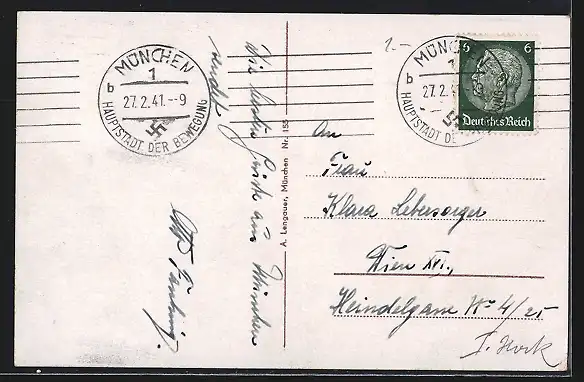 MÜNCHEN
1
b
27.2.41.--9
HAUPTSTADT DER BEWEGUNG
1.-
MÜNCHEN
1
b
27.2.41
HAUPTSTADT DE
6 6
Deutsches Reich
Die besten Grüße aus München
sendet
A. Lengauer, München Nr. 155
An
Frau
Klara Lebersorger
Wien XVI.,
Heindelgasse No 4/25
I. Stock